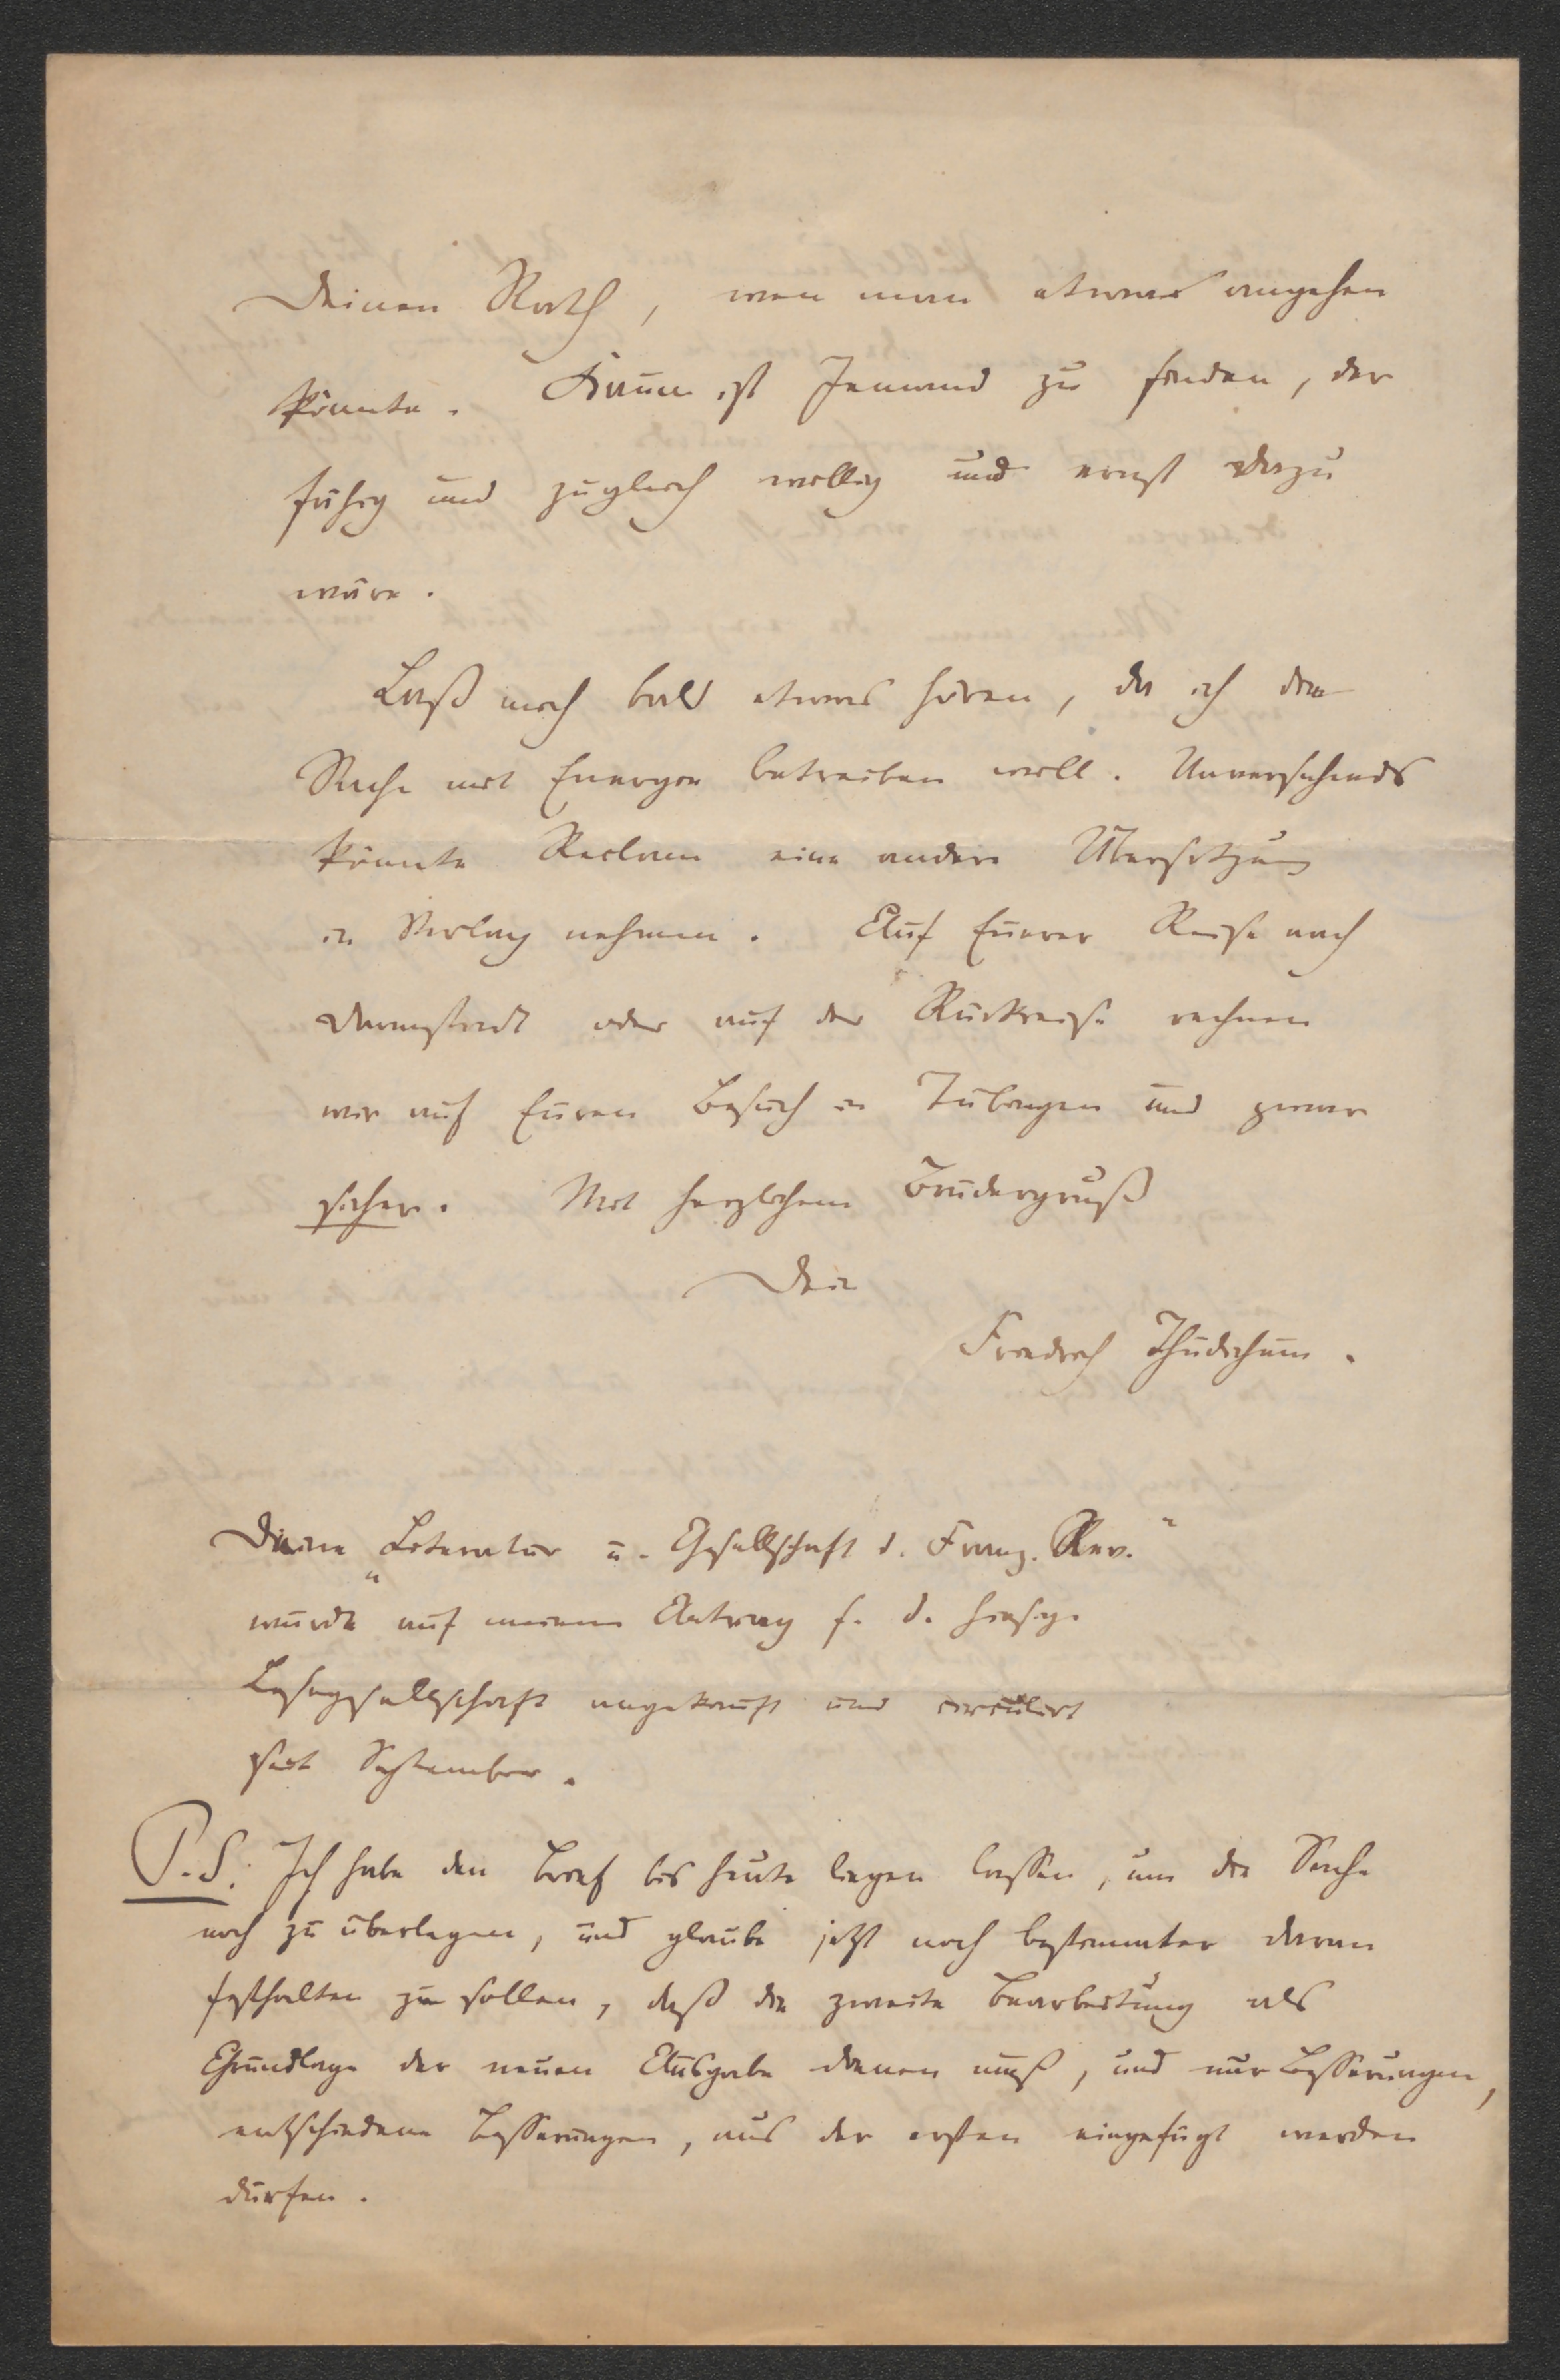 Deinen Rath, wen man etwas angehen
könnte. Kaum ist Jemand zu finden, der
fähig und zugleich willig und ernst dazu
wäre.
Laß mich bald etwas hören, da ich die
Sache mit Energie betreiben will. Unversehends
könnte Reclam eine andere Übersetzung
in Verlag nehmen. Auf Eurer Reise nach
Darmstadt oder auf der Rückreise rechnen
wir auf Euren Besuch in Tübingen und zwar
sicher. Mit herzlichem Brudergruß
Dein
Friedrich Thudichum.
Deine „Literatur u. Gesellschaft d. Franz. Rev."
wurde auf meinen Antrag f. d. hiesige
Lesegesellschaft angekauft und circulirt
seit September.
P.S: Ich habe den Brief bis heute liegen lassen, um die Sache
noch zu überlegen, und glaube jetzt noch bestimmter daran
festhalten zu sollen, daß die zweite Bearbeitung als
Grundlage der neuen Ausgabe dienen muß, und nur Besserungen,
entschiedene Besserungen, aus der ersten eingefügt werden
dürfen.